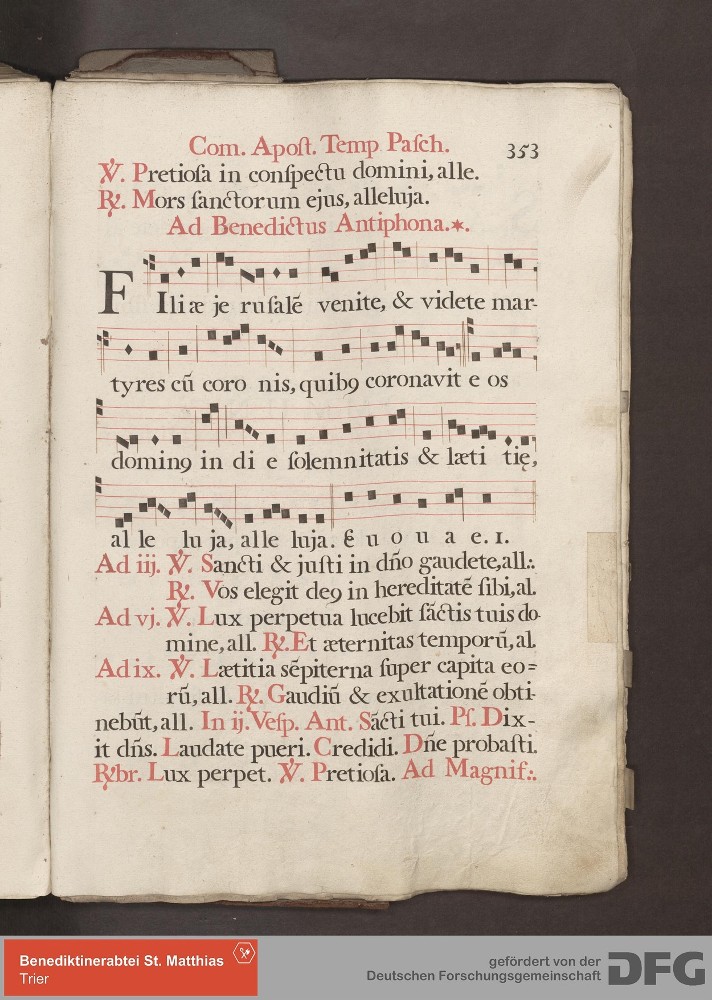 Com. Apoſt. Temp. Paſch. 353
℣. Pretioſa in conſpectu domini, alle.
℟. Mors ſanctorum ejus, alleluja.
Ad Benedictus Antiphona.*.
FIliæ je ruſalē venite, & videte mar-
tyres cū coro nis, quibꝯ coronavit e os
dominꝯ in di e ſolemnitatis & læti tię,
al le lu ja, alle luja. E u o u a e. 1.
Ad iij. ℣. Sancti & juſti in dño gaudete, all:.
℟. Vos elegit deꝯ in hereditatē ſibi, al.
Ad vj. ℣. Lux perpetua lucebit ſāctis tuis do-
mine, all. ℟. Et æternitas temporū, al.
Ad ix. ℣. Lætitia sēpiterna ſuper capita eo=
rū, all. ℟. Gaudiū & exultationē obti-
nebūt, all. In ij. Veſp. Ant. Sācti tui. Pſ. Dix-
it dñs. Laudate pueri. Credidi. Dñe probaſti.
℟br. Lux perpet. ℣. Pretioſa. Ad Magnif:.
Benediktinerabtei St. Matthias
Trier
gefördert von der
Deutschen Forschungsgemeinschaft
DFG